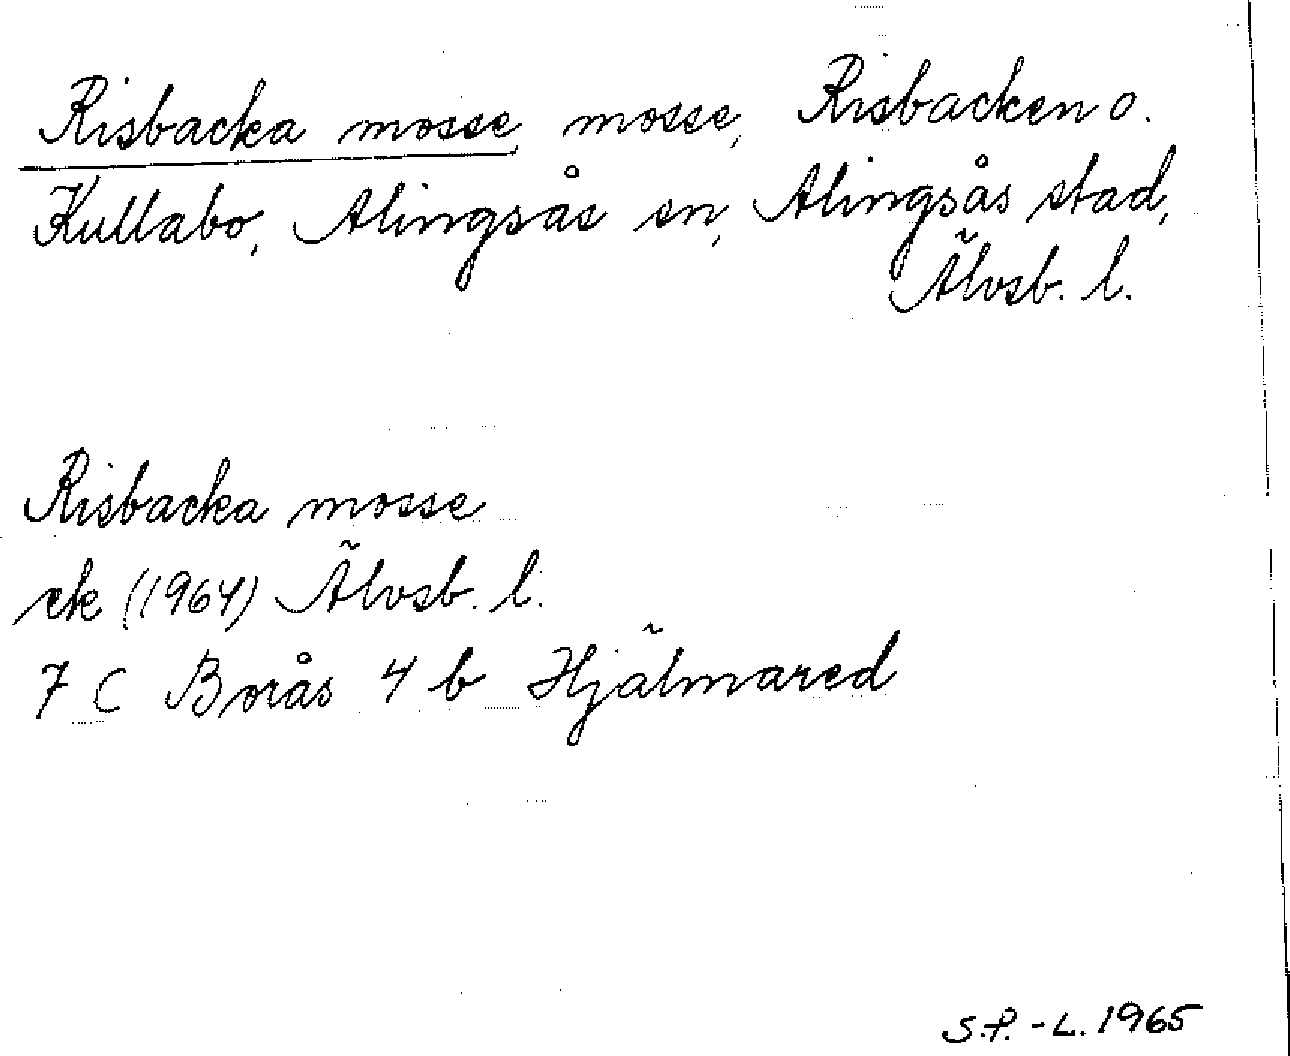 Risbacka mosse, mosse, Risbacken o.
Kullabo, Alingsås sn, Alingsås stad,
Älvsb. l.
Risbacka mosse
ek (1964) Älvsb. l.
7 C Borås 4 b Hjälmared
S.P.-L. 1965